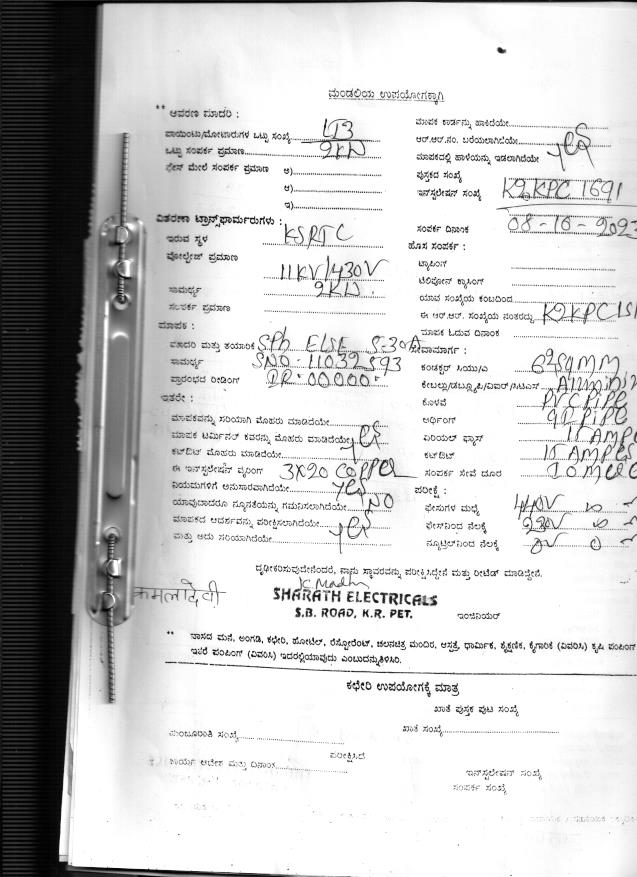 ಮಂಡಲಿಯ ಉಪಯೋಗಕ್ಕಾಗಿ
** ಆವರಣ ಮಾದರಿ :
ಪಾಯಿಂಟು/ಮೋಟಾರುಗಳ ಒಟ್ಟು ಸಂಖ್ಯೆ LT3
ಒಟ್ಟು ಸಂಪರ್ಕ ಪ್ರಮಾಣ 2KW
ಫೇಸ್ ಮೇಲೆ ಸಂಪರ್ಕ ಪ್ರಮಾಣ ಅ)
ಆ)
ಇ)
ವಿತರಣಾ ಟ್ರಾನ್ಸ್‌ಫಾರ್ಮರುಗಳು :
ಇರುವ ಸ್ಥಳ KSRTC
ವೋಲ್ಟೇಜ್ ಪ್ರಮಾಣ 11KV/430V
ಸಾಮರ್ಥ್ಯ 2KW
ಸಂಪರ್ಕ ಪ್ರಮಾಣ
ಮಾಪಕ :
ಮಾದರಿ ಮತ್ತು ತಯಾರಿಕೆ SPh ELSE 5-30A
ಸಾಮರ್ಥ್ಯ SNO-11032593
ಪ್ರಾರಂಭದ ರೀಡಿಂಗ್ IR-00000-
ಇತರೇ :
ಮಾಪಕವನ್ನು ಸರಿಯಾಗಿ ಮೊಹರು ಮಾಡಿದೆಯೇ
ಮಾಪಕ ಟರ್ಮಿನಲ್ ಕವರನ್ನು ಮೊಹರು ಮಾಡಿದೆಯೇ yes
ಕಟ್‌ಔಟ್ ಮೊಹರು ಮಾಡಿದೆಯೇ
ಈ ಇನ್‌ಸ್ಟಲೇಷನ್ ವೈರಿಂಗ್ 3X20 COPPER
ನಿಯಮಗಳಿಗೆ ಅನುಸಾರವಾಗಿದೆಯೇ yes
ಯಾವುದಾದರೂ ನ್ಯೂನತೆಯನ್ನು ಗಮನಿಸಲಾಗಿದೆಯೇ NO
ಮಾಪಕದ ಆದರ್ಶವನ್ನು ಪರೀಕ್ಷಿಸಲಾಗಿದೆಯೇ yes
ಮತ್ತು ಅದು ಸರಿಯಾಗಿದೆಯೇ
ಮಾಪಕ ಕಾರ್ಡನ್ನು ಹಾಕಿದೆಯೇ
ಆರ್.ಆರ್.ನಂ. ಬರೆಯಲಾಗಿದೆಯೇ yes
ಮಾಪಕದಲ್ಲಿ ಹಾಳೆಯನ್ನು ಇಡಲಾಗಿದೆಯೇ
ಪುಸ್ತಕದ ಸಂಖ್ಯೆ
ಇನ್‌ಸ್ಟಲೇಷನ್ ಸಂಖ್ಯೆ K2KPC 1691
ಸಂಪರ್ಕ ದಿನಾಂಕ 08-16-2023
ಹೊಸ ಸಂಪರ್ಕ :
ಟ್ಯಾಪಿಂಗ್
ಟೆಲಿಫೋನ್ ಕ್ರಾಸಿಂಗ್
ಯಾವ ಸಂಖ್ಯೆಯ ಕಂಬದಿಂದ
ಈ ಆರ್.ಆರ್. ಸಂಖ್ಯೆಯ ನಂತರದ್ದು K2KPC
ಮಾಪಕ ಓದುವ ದಿನಾಂಕ
ಸೇವಾಮಾರ್ಗ :
ಕಂಡಕ್ಟರ್ ಸಿಯು/ಎ SQMM
ಕೇಬಲ್ಲು/ಡಬ್ಲ್ಯೂಪಿ/ವಿಐಆರ್/ಸಿಟಿಎಸ್
ಕೊಳವೆ PVC PIPE
ಅರ್ಥಿಂಗ್ GI PIPE
ಏರಿಯಲ್ ಫ್ಯೂಸ್ 15 AMPE
ಕಟ್‌ಔಟ್ 15 AMPES
ಸಂಪರ್ಕ ಸೇವೆ ದೂರ
ಪರೀಕ್ಷೆ :
ಫೇಸುಗಳ ಮಧ್ಯೆ 440V
ಫೇಸ್‌ನಿಂದ ನೆಲಕ್ಕೆ 230V
ನ್ಯೂಟ್ರಲ್‌ನಿಂದ ನೆಲಕ್ಕೆ 0V
ದೃಢೀಕರಿಸುವುದೇನೆಂದರೆ, ನಾನು ಸ್ಥಾವರವನ್ನು ಪರೀಕ್ಷಿಸಿದ್ದೇನೆ ಮತ್ತು ರೀಟೆಡ್ ಮಾಡಿದ್ದೇನೆ.
K. Madhu
ಕಮಲಾದೇವಿ
SHARATH ELECTRICALS
S.B. ROAD, K.R. PET.
ಇಂಜಿನಿಯರ್
** ವಾಸದ ಮನೆ, ಅಂಗಡಿ, ಕಛೇರಿ, ಹೋಟೆಲ್, ರೆಸ್ಟೋರೆಂಟ್, ಚಲನಚಿತ್ರ ಮಂದಿರ, ಆಸ್ಪತ್ರೆ, ಧಾರ್ಮಿಕ, ಶೈಕ್ಷಣಿಕ, ಕೈಗಾರಿಕೆ (ವಿವರಿಸಿ) ಕೃಷಿ ಪಂಪಿಂಗ್
ಇತರೆ ಪಂಪಿಂಗ್ (ವಿವರಿಸಿ) ಇದರಲ್ಲಿಯಾವುದು ಎಂಬುದನ್ನು ತಿಳಿಸಿರಿ.
ಕಛೇರಿ ಉಪಯೋಗಕ್ಕೆ ಮಾತ್ರ
ಖಾತೆ ಪುಸ್ತಕ ಪುಟ ಸಂಖ್ಯೆ
ಮಂಜೂರಾತಿ ಸಂಖ್ಯೆ
ಖಾತೆ ಸಂಖ್ಯೆ
ಪರೀಕ್ಷಿಸಿದೆ
ಕಾರ್ಯ ಆದೇಶ ಮತ್ತು ದಿನಾಂಕ
ಇನ್‌ಸ್ಟಲೇಷನ್ ಸಂಖ್ಯೆ
ಸಂಪರ್ಕ ಸಂಖ್ಯೆ